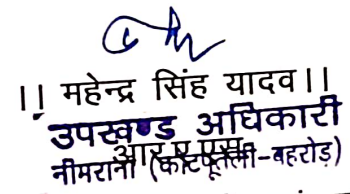 || महेन्द्र सिंह यादव ||
उपखण्ड अधिकारी
आर.ए.एस.
नीमराना (कोटपूतली-बहरोड़)